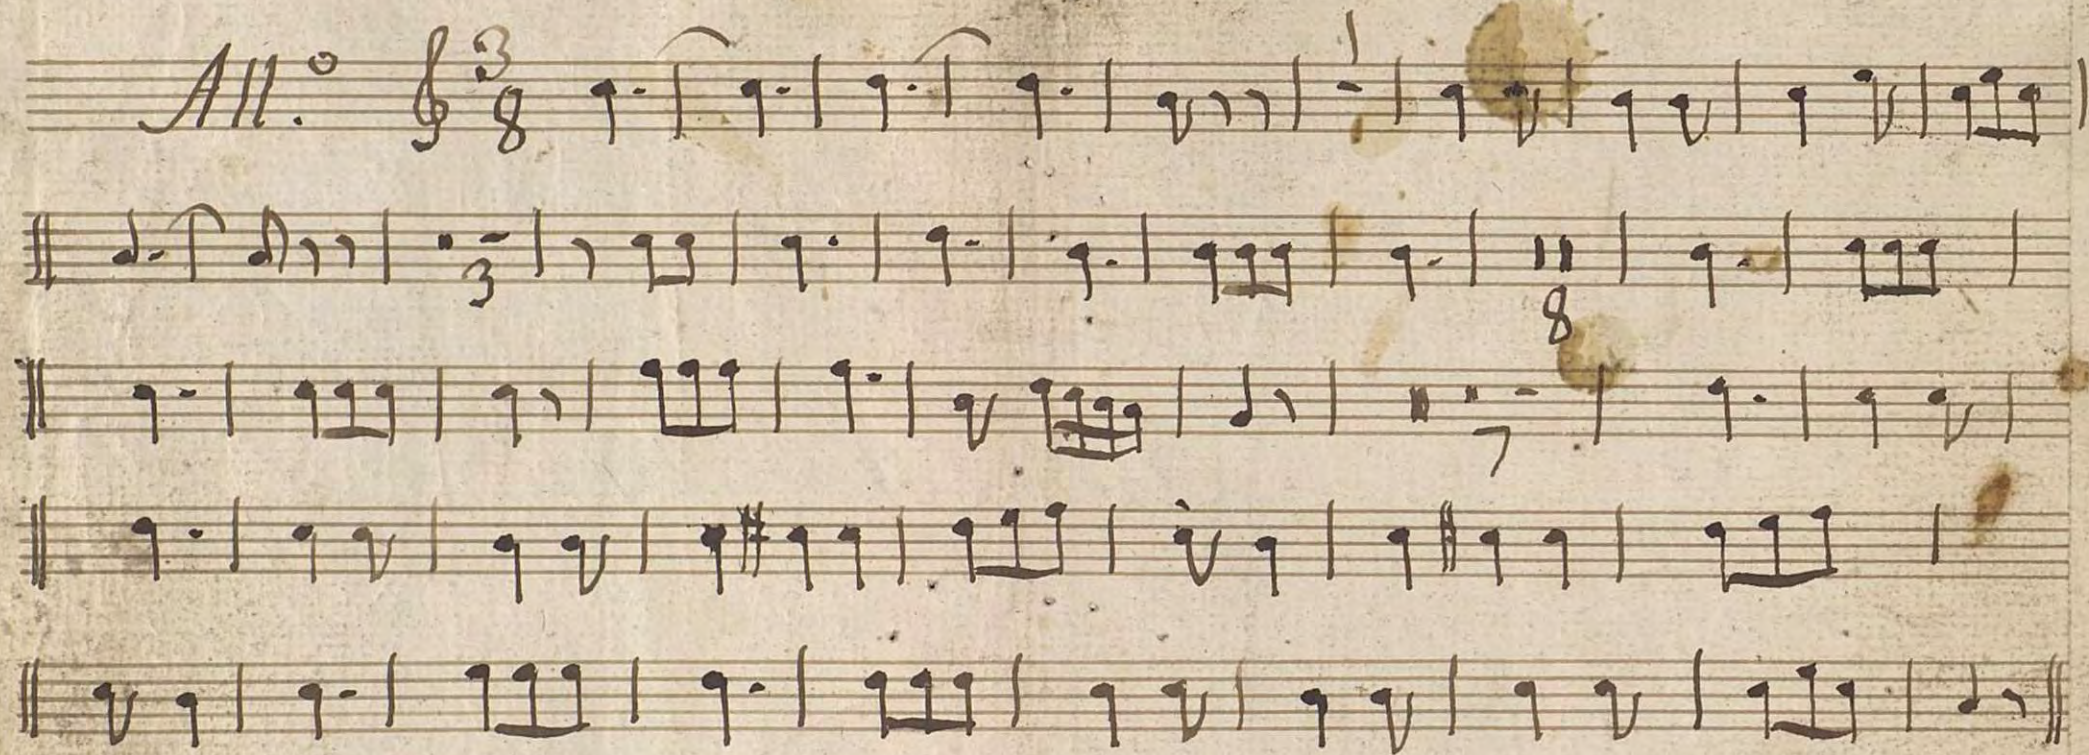 All.o 3 8 1
3 8
7